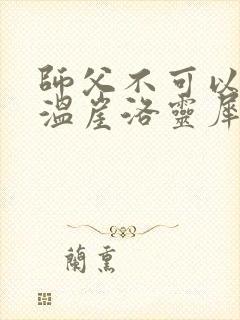 師父不可以
溫崖洛靈犀
蘭熏